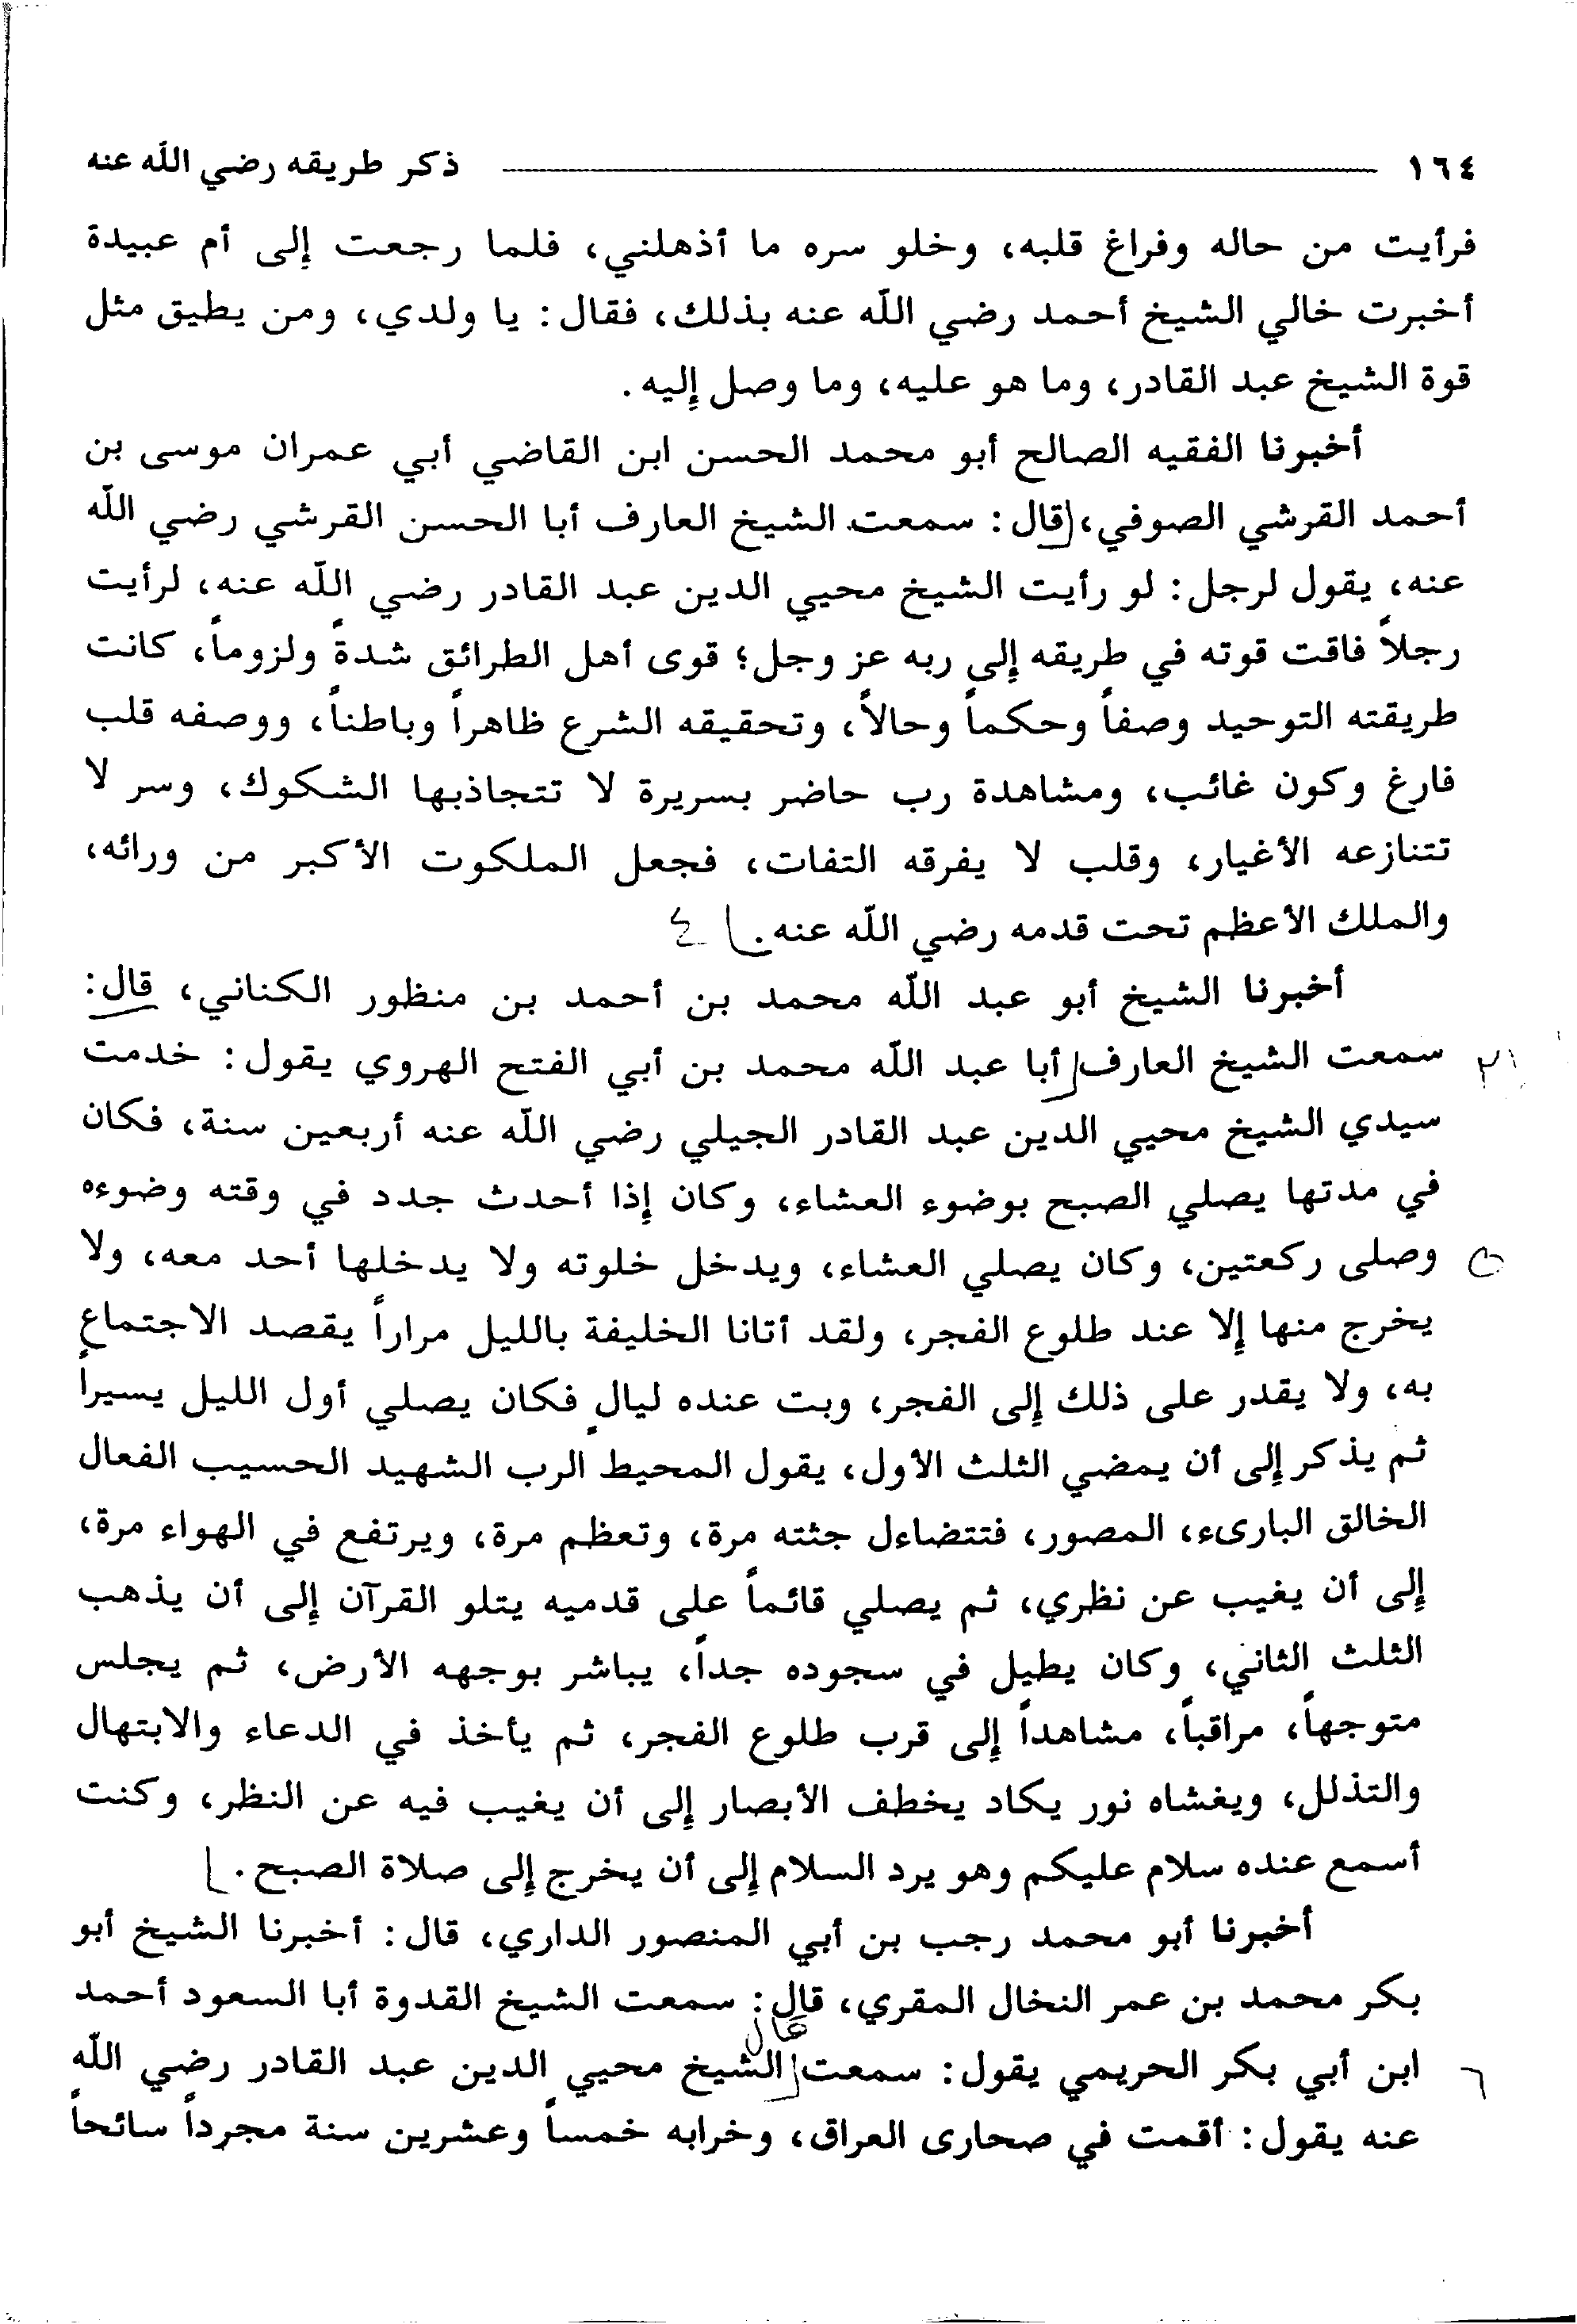 ١٦٤ ذكر طريقه رضي الله عنه
فرأيت من حاله وفراغ قلبه، وخلو سره ما أذهلني، فلما رجعت إلى أم عبيدة
أخبرت خالي الشيخ أحمد رضي الله عنه بذلك، فقال: يا ولدي، ومن يطيق مثل
قوة الشيخ عبد القادر، وما هو عليه، وما وصل إليه.
أخبرنا الفقيه الصالح أبو محمد الحسن ابن القاضي أبي عمران موسى بن
أحمد القرشي الصوفي، قال: سمعت الشيخ العارف أبا الحسن القرشي رضي الله
عنه، يقول لرجل: لو رأيت الشيخ محيي الدين عبد القادر رضي الله عنه، لرأيت
رجلاً فاقت قوته في طريقه إلى ربه عز وجل؛ قوى أهل الطرائق شدةً ولزوماً، كانت
طريقته التوحيد وصفاً وحكماً وحالاً، وتحقيقه الشرع ظاهراً وباطناً، ووصفه قلب
فارغ وكون غائب، ومشاهدة رب حاضر بسريرة لا تتجاذبها الشكوك، وسر لا
تتنازعه الأغيار، وقلب لا يفرقه التفات، فجعل الملكوت الأكبر من ورائه،
والملك الأعظم تحت قدمه رضي الله عنه. ٤
أخبرنا الشيخ أبو عبد الله محمد بن أحمد بن منظور الكناني، قال:
سمعت الشيخ العارف أبا عبد الله محمد بن أبي الفتح الهروي يقول: خدمت
سيدي الشيخ محيي الدين عبد القادر الجيلي رضي الله عنه أربعين سنة، فكان
في مدتها يصلي الصبح بوضوء العشاء، وكان إذا أحدث جدد في وقته وضوءه
٥ وصلى ركعتين، وكان يصلي العشاء، ويدخل خلوته ولا يدخلها أحد معه، ولا
يخرج منها إلا عند طلوع الفجر، ولقد أتانا الخليفة بالليل مراراً يقصد الاجتماع
به، ولا يقدر على ذلك إلى الفجر، وبت عنده ليالٍ فكان يصلي أول الليل يسيراً
ثم يذكر إلى أن يمضي الثلث الأول، يقول المحيط الرب الشهيد الحسيب الفعال
الخالق البارىء، المصور، فتتضاءل جثته مرة، وتعظم مرة، ويرتفع في الهواء مرة،
إلى أن يغيب عن نظري، ثم يصلي قائماً على قدميه يتلو القرآن إلى أن يذهب
الثلث الثاني، وكان يطيل في سجوده جداً، يباشر بوجهه الأرض، ثم يجلس
متوجهاً، مراقباً، مشاهداً إلى قرب طلوع الفجر، ثم يأخذ في الدعاء والابتهال
والتذلل، ويغشاه نور يكاد يخطف الأبصار إلى أن يغيب فيه عن النظر، وكنت
أسمع عنده سلام عليكم وهو يرد السلام إلى أن يخرج إلى صلاة الصبح.
أخبرنا أبو محمد رجب بن أبي المنصور الداري، قال: أخبرنا الشيخ أبو
بكر محمد بن عمر النخال المقري، قال: سمعت الشيخ القدوة أبا السعود أحمد
قال
٦ ابن أبي بكر الحريمي يقول: سمعت الشيخ محيي الدين عبد القادر رضي الله
عنه يقول: أقمت في صحارى العراق، وخرابه خمساً وعشرين سنة مجرداً سائحاً